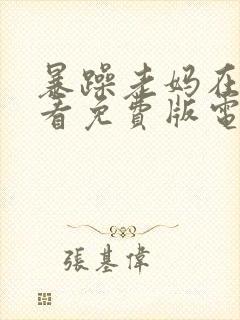 暴躁老妈在
看免费版電
張基偉